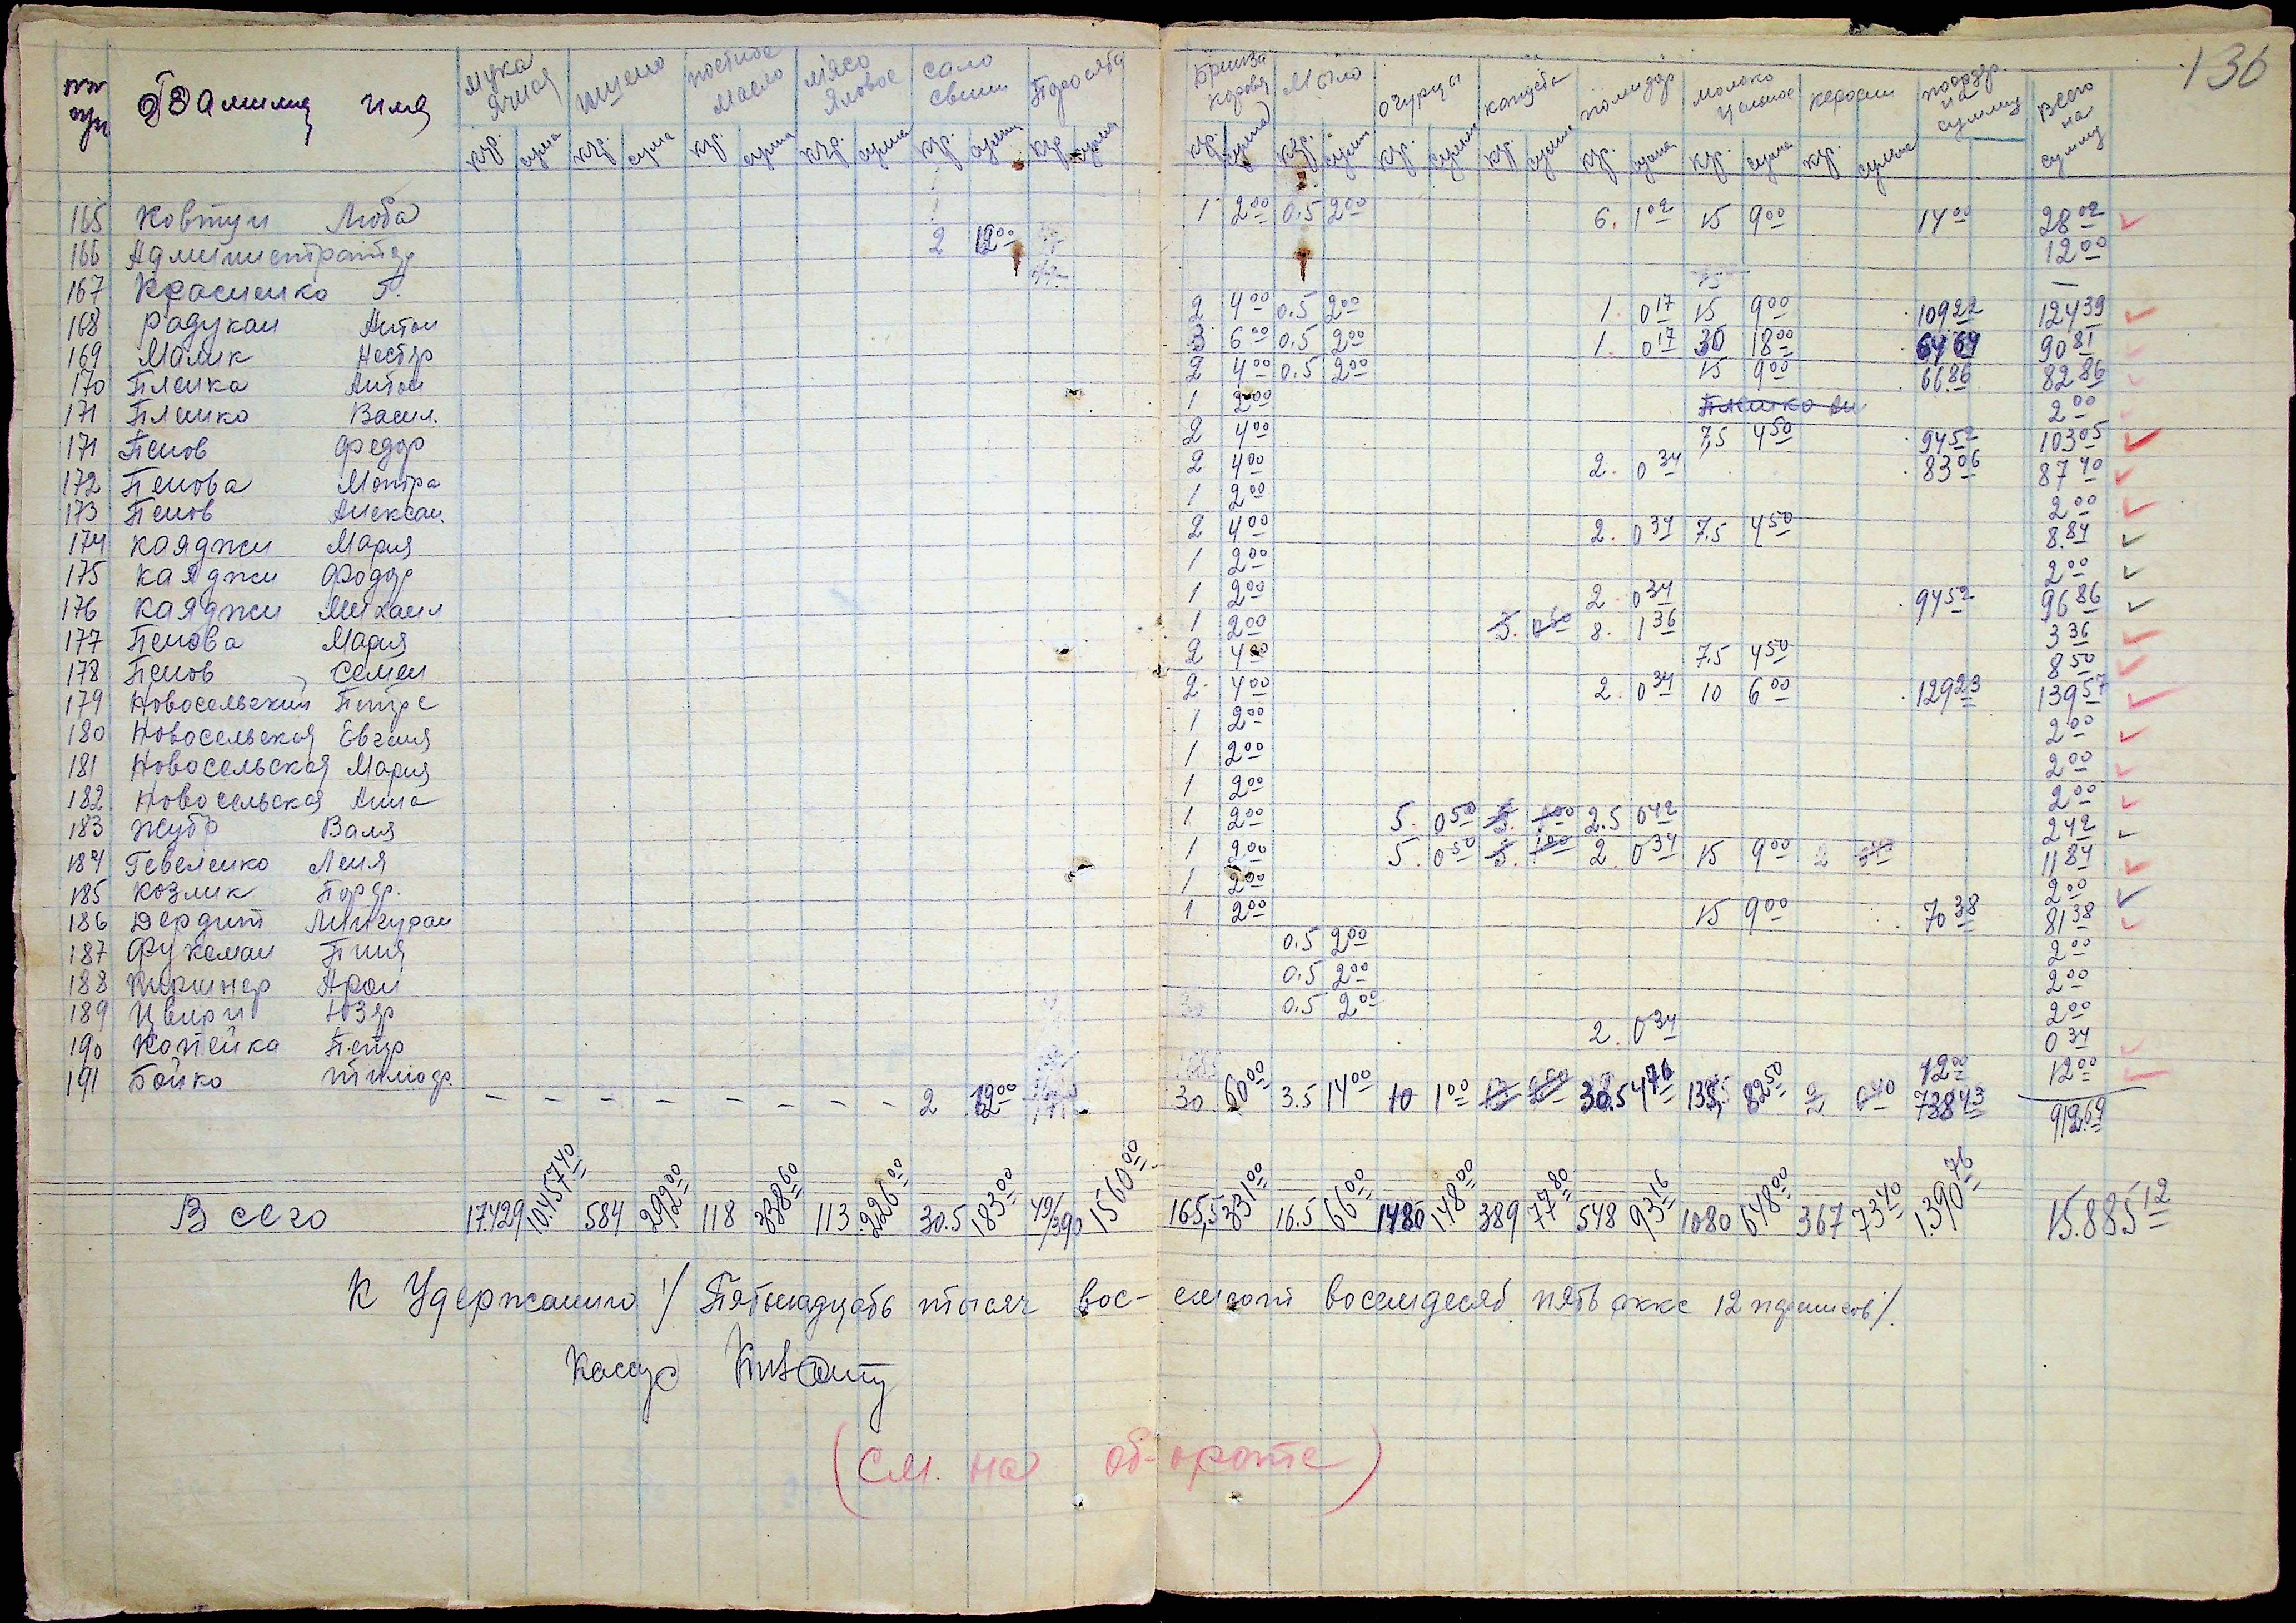 136
Фамилия Имя мука ячная пшено постное масло мясо яловое сало свин Поросята Брынза коровя Мыло огурцы капуста помидор молоко цельное керосин на сумму Всего на сумму
кгр. сума кгр. сума кгр. сумма кгр. сумма кгр. сумма кгр. сумма кгр. сумма кгр. сумма кгр. сумма кгр. сумма кгр. сумма кгр. сумма кгр. сумма
165 Ковтун Люба 1 2 00 0.5 2 00 6. 1 02 15 9 00 14 00 28 02
166 Администратор 2 12 00 12 00
167 Красненко Г. 15 —
168 Радукан Антон 2 4 00 0.5 2 00 1. 0 17 15 9 00 109 22 124 39
169 Малик Нестор 3 6 00 0.5 2 00 1. 0 17 30 18 00 64 64 90 81
170 Пленка Антон 2 4 00 0.5 2 00 15 9 00 66 86 82 86
171 Пленко Васил. 1 2 00 2 00
171 Пенов Федор 2 4 00 7,5 4 50 94 52 103 05
172 Пенова Мотра 2 4 00 2. 0 34 83 06 87 40
173 Пенов Алексан. 1 2 00 2 00
174 Каяджи Мария 2 4 00 2. 0 34 7.5 4 50 8.84
175 Каяджи Фодор 1 2 00 2 00
176 Каяджи Михаил 1 2 00 2 0 34 94 52 96 86
177 Пенова Мария 1 2 00 3. 0 60 8. 1 36 3 36
178 Пенов Семен 2 4 00 7.5 4 50 8 50
179 Новосельский Петре 2 4 00 2. 0 34 10 6 00 129 23 139 57
180 Новосельская Евгения 1 2 00 2 00
181 Новосельская Мария 1 2 00 2 00
182 Новосельская Анна 1 2 00 2 00
183 Жубр Валя 1 2 00 5. 0 50 5. 1 00 2.5 0 42 2 42
184 Гевеленко Леня 1 2 00 5. 0 50 5. 1 00 2. 0 34 15 9 00 2 0 40 11 84
185 Козлик 1 2 00 2 00
186 Дердит 1 2 00 15 9 00 70 38 81 38
187 Фуксман Пиня 0.5 2 00 2 00
188 Арон 0.5 2 00 2 00
189 0.5 2 00 2 00
190 Копейка Петр 2. 0 34 0 34
191 Бойко 12 00 12 00
— — — — — — — — 2 12 00 30 60 00 3.5 14 00 10 1 00 13 2 60 30.5 4 76 135, 82 50 2 0 40 738 43 912,69
Всего 17.429 10.457 40 584 292 00 118 338 60 113 226 00 30.5 183 00 49/390 1560 00 165,5 331 00 16.5 66 00 1480 148 00 389 77 80 548 93 16 1080 648 00 367 73 40 1.390 76 15.885 12
К Удержанию /Пятьнадцать тысяч вос- емсот восемдесят пять рккс 12 пфенигов/.
Касир
(См. на об-ороте)